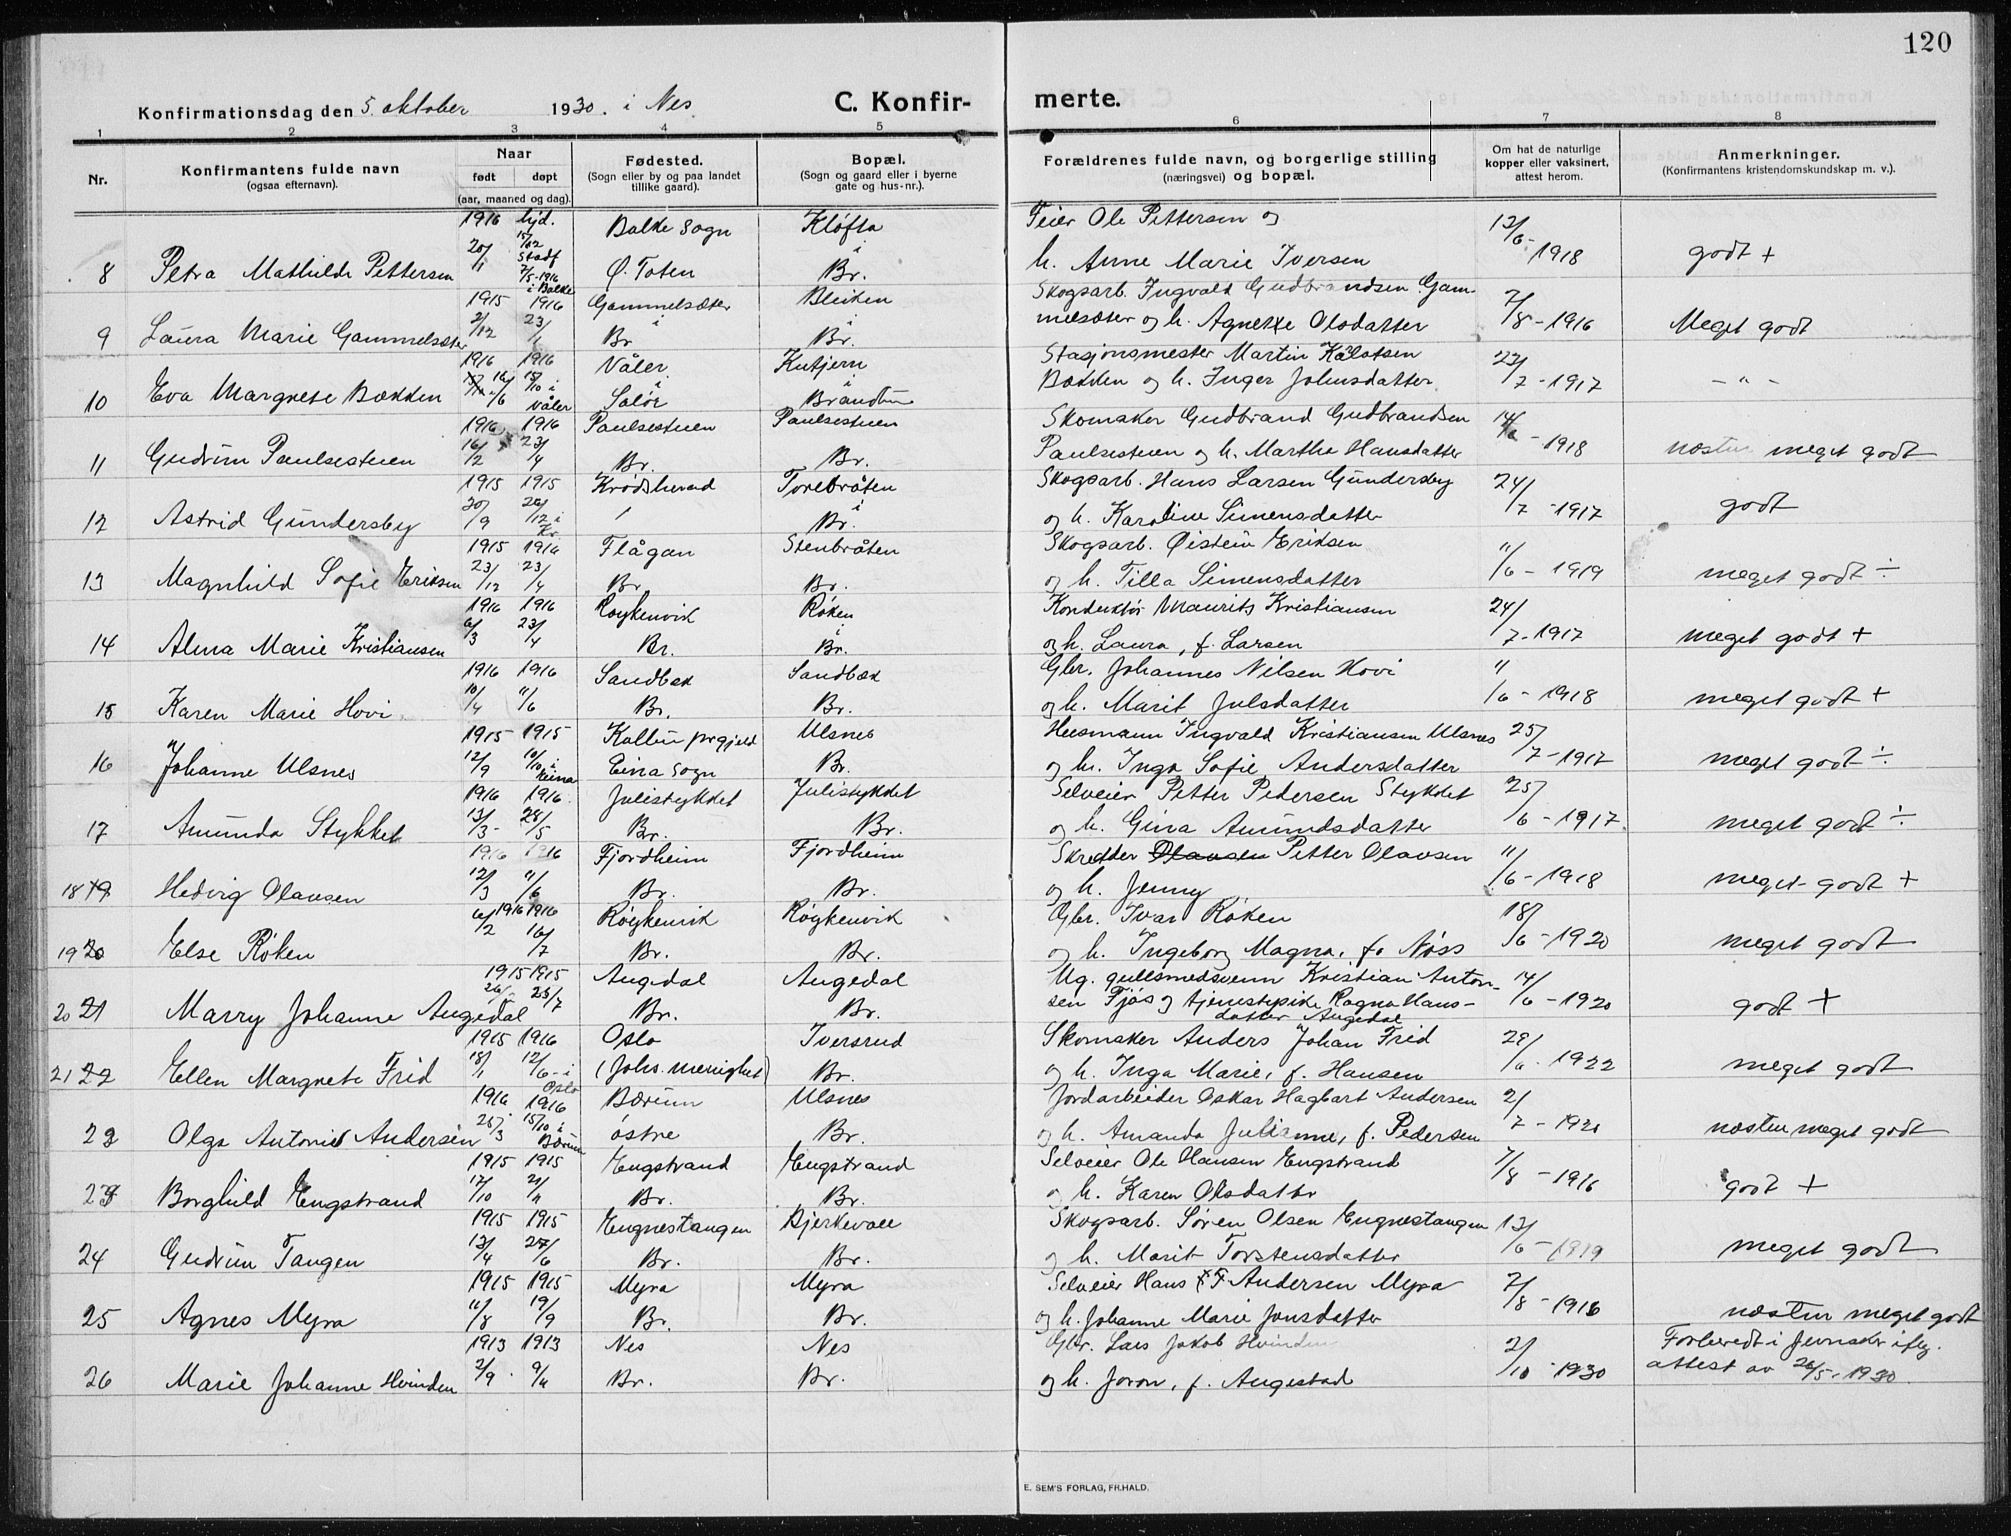 120
Konfirmationsdag den 5. oktober 1930. i Nes C. Konfir- merte.
1 2 3 4 5 6 7 8
Nr. Konfirmantens fulde navn (ogsaa efternavn). Naar født døpt (aar, maaned og dag). Fødested. (Sogn eller by og paa landet tillike gaard). Bopæl. (Sogn og gaard eller i byerne gate og hus-nr.). Forældrenes fulde navn, og borgerlige stilling (næringsvei) og bopæl. Om hat de naturlige kopper eller vaksinert, attest herom. Anmerkninger. (Konfirmantens kristendomskundskap m. v.).
1916 hjd. Balke sogn Kløfta Feier Ole Pettersen og 13/6-
8 Petra Mathilde Pettersen 20/1 15/02 Stadf 7/5-1916 i Balke Ø. Toten i Br. h. Anne Marie Iversen 1918 godt +
1915 1916 Gammelsæter Bleiken Skogsarb. Ingvald Gudbrandsen Gam-
9 Laura Marie Gammelsæter 2/12 23/1 i Br i Br. melsæter og h. Agnethe Olsdatter 7/8-1916 Meget godt
1916 1916 Våler Kutjern Stasjonsmester Martin
10 Eva Margrete Bækken 16/6 15/10 i Våler i Solør i Brandbu Bækken og h. Inger Johnsdatter 23/7-1917 - " -
1916 1916 Paulsestuen Paulsestuen Skomaker Gudbrand Gudbrandsen
11 Gudrun Paulsestuen 16/2 23/4 Br. Br. Paulsestuen og h. Martha Hansdatter 14/6-1918 næsten meget godt
1915 1915 Krødsherad Torebråten Skogsarb. Hans Larsen Gundersby
12 Astrid Gundersby 30/9 26/12 i Kr. i Br. og h. Karoline Simensdatter 24/7-1917 godt
1915 1916 Flågan Stenbråten Skogsarb. Øistein Eriksen
13 Magnhild Sofie Eriksen 23/12 23/4 Br Br. og h. Tilla Simensdatter 11/6-1919 meget godt ÷
1916 1916 Røykenvik Røken Konduktør Maurits Kristiansen
14 Alma Marie Kristiansen 6/3 23/4 Br. i Br. og h. Laura, f. Larsen 24/7-1917 meget godt +
1916 1916 Sandbæk Sandbæk Gbr. Johannes Nilsen Hovi
15 Karen Marie Hovi 10/4 11/6 Br. Br. og h. Marit Julsdatter 11/6-1918 meget godt +
1915 1915 Kolbu prgjeld Ulsnes Husmann Ingvald Kristiansen Ulsnes
16 Johanne Ulsnes 12/9 10/10 i Eina Eina sogn Br. og h. Inga Sofie Andersdatter 25/7-1917 meget godt ÷
1916 1916 Julistykket Julistykket Selveier Petter Pedersen Stykket
17 Amunda Stykket 13/3- 28/5 Br. Br. og h. Gina Amundsdatter 25/6-1917 meget godt ÷
1916 1916 Fjordheim Fjordheim Skredder Olausen Petter Olausen
18 19 Hedvig Olausen 12/3 11/6 Br. Br. og h. Jenny 11/6-1918 meget godt +
1916 1916 Røykenvik Røykenvik Gbr. Ivar Røken
19 20 Else Røken 6/2 16/7 Br. Br. og h. Ingeborg Magna, f. Nøss 18/6-1920 meget godt
1915 1915 Augedal Augedal Ug. gullsmedsvenn Kristian Anton-
20 21 Marry Johanne Augedal 25/7 Br. Br. sen Fjøs og tjenestepike Ragna Hans-
datter Augedal 14/6-1920 godt +
1915 1916 Oslo Iversrud Skomaker Anders Johan Frid
21 22 Ellen Margrete Frid 18/1 12/6- i Oslo (Johs. menighet) Br. og h. Inga Marie, f. Hansen 29/6-1922 meget godt
1916 1916 Bærum Ulsnes Jordarbeider Oskar Hagbart Andersen
22 Olga Antonie Andersen 25/3 15/10 i Bærum østre Br. og h. Amanda Julianne, f. Pedersen 2/7-1920 næsten meget godt
1915 1915 Engstrand Engstrand Selveier Ole Hansen Engstrand
23 Borghild Engstrand 17/10 21/11 Br. Br. og h. Karen Olsdatter 7/8-1916 godt +
1915 1915 Engnestangen Bjerkevold Skogsarb. Søren Olsen Engnestangen
24 Gudrun Tangen 13/4 27/6 Br. Br. og h. Marit Torstensdatter 13/6-1919 meget godt
1915 1915 Myra Myra Selveier Hans F Andersen Myra
25 Agnes Myra 11/8 19/9 Br. Br. og h. Johanne Marie Jonsdatter 7/8-1916 næsten meget godt
1913 1913 Nes Nes Gbr. Lars Jakob Hvinden Forberedt i Jevnaker iflg.
26 Marie Johanne Hvinden 2/9 9/11 Br. Br. og h. Joron, f. Augestad 2/10-1930 attest av 26/5-1930
E. SEM'S FORLAG, FR.HALD.